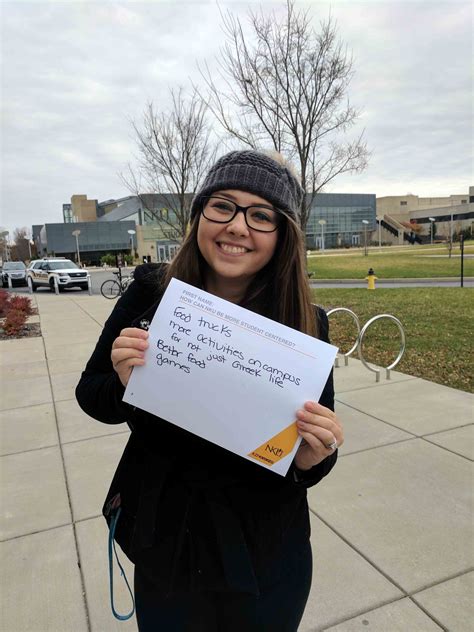 FIRST NAME:
HOW CAN NKU BE MORE STUDENT CENTERED?
Food trucks
more activities on campus
for not just Greek life
Better food
games
NKU